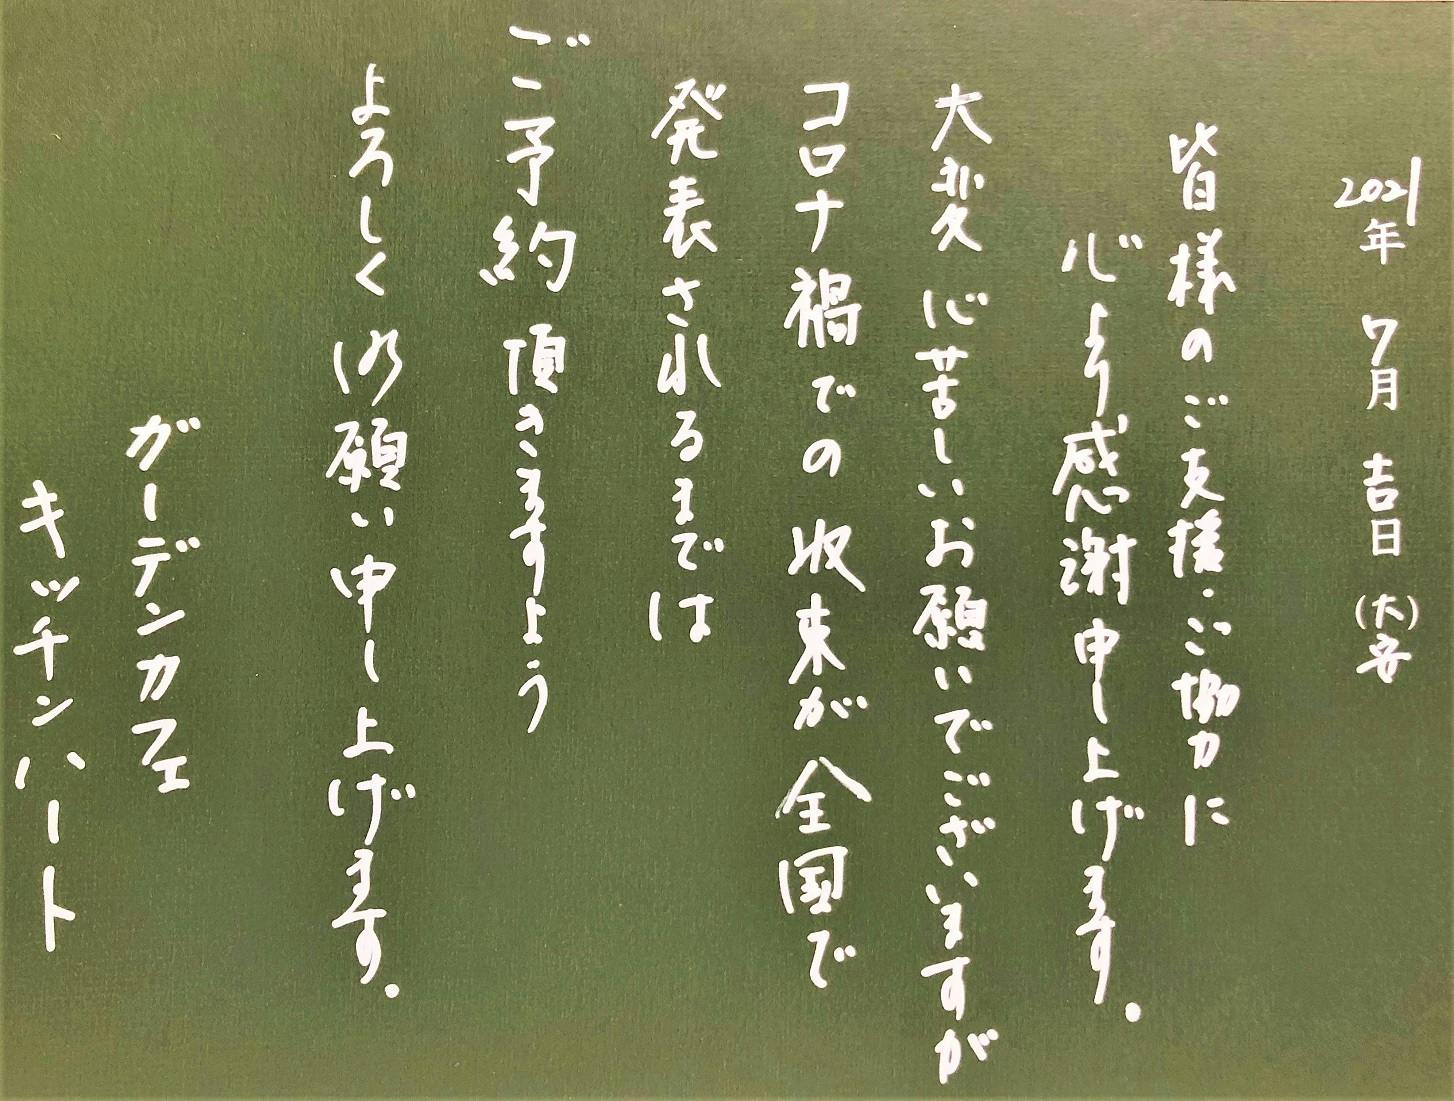 2021年 7月 吉日 (大安)
皆様のご支援・ご協力に
心より感謝申し上げます。
大変心苦しいお願いでございますが
コロナ禍での収束が全国で
発表されるまでは
ご予約頂きますよう
よろしくお願い申し上げます。
ガーデンカフェ
キッチンハート